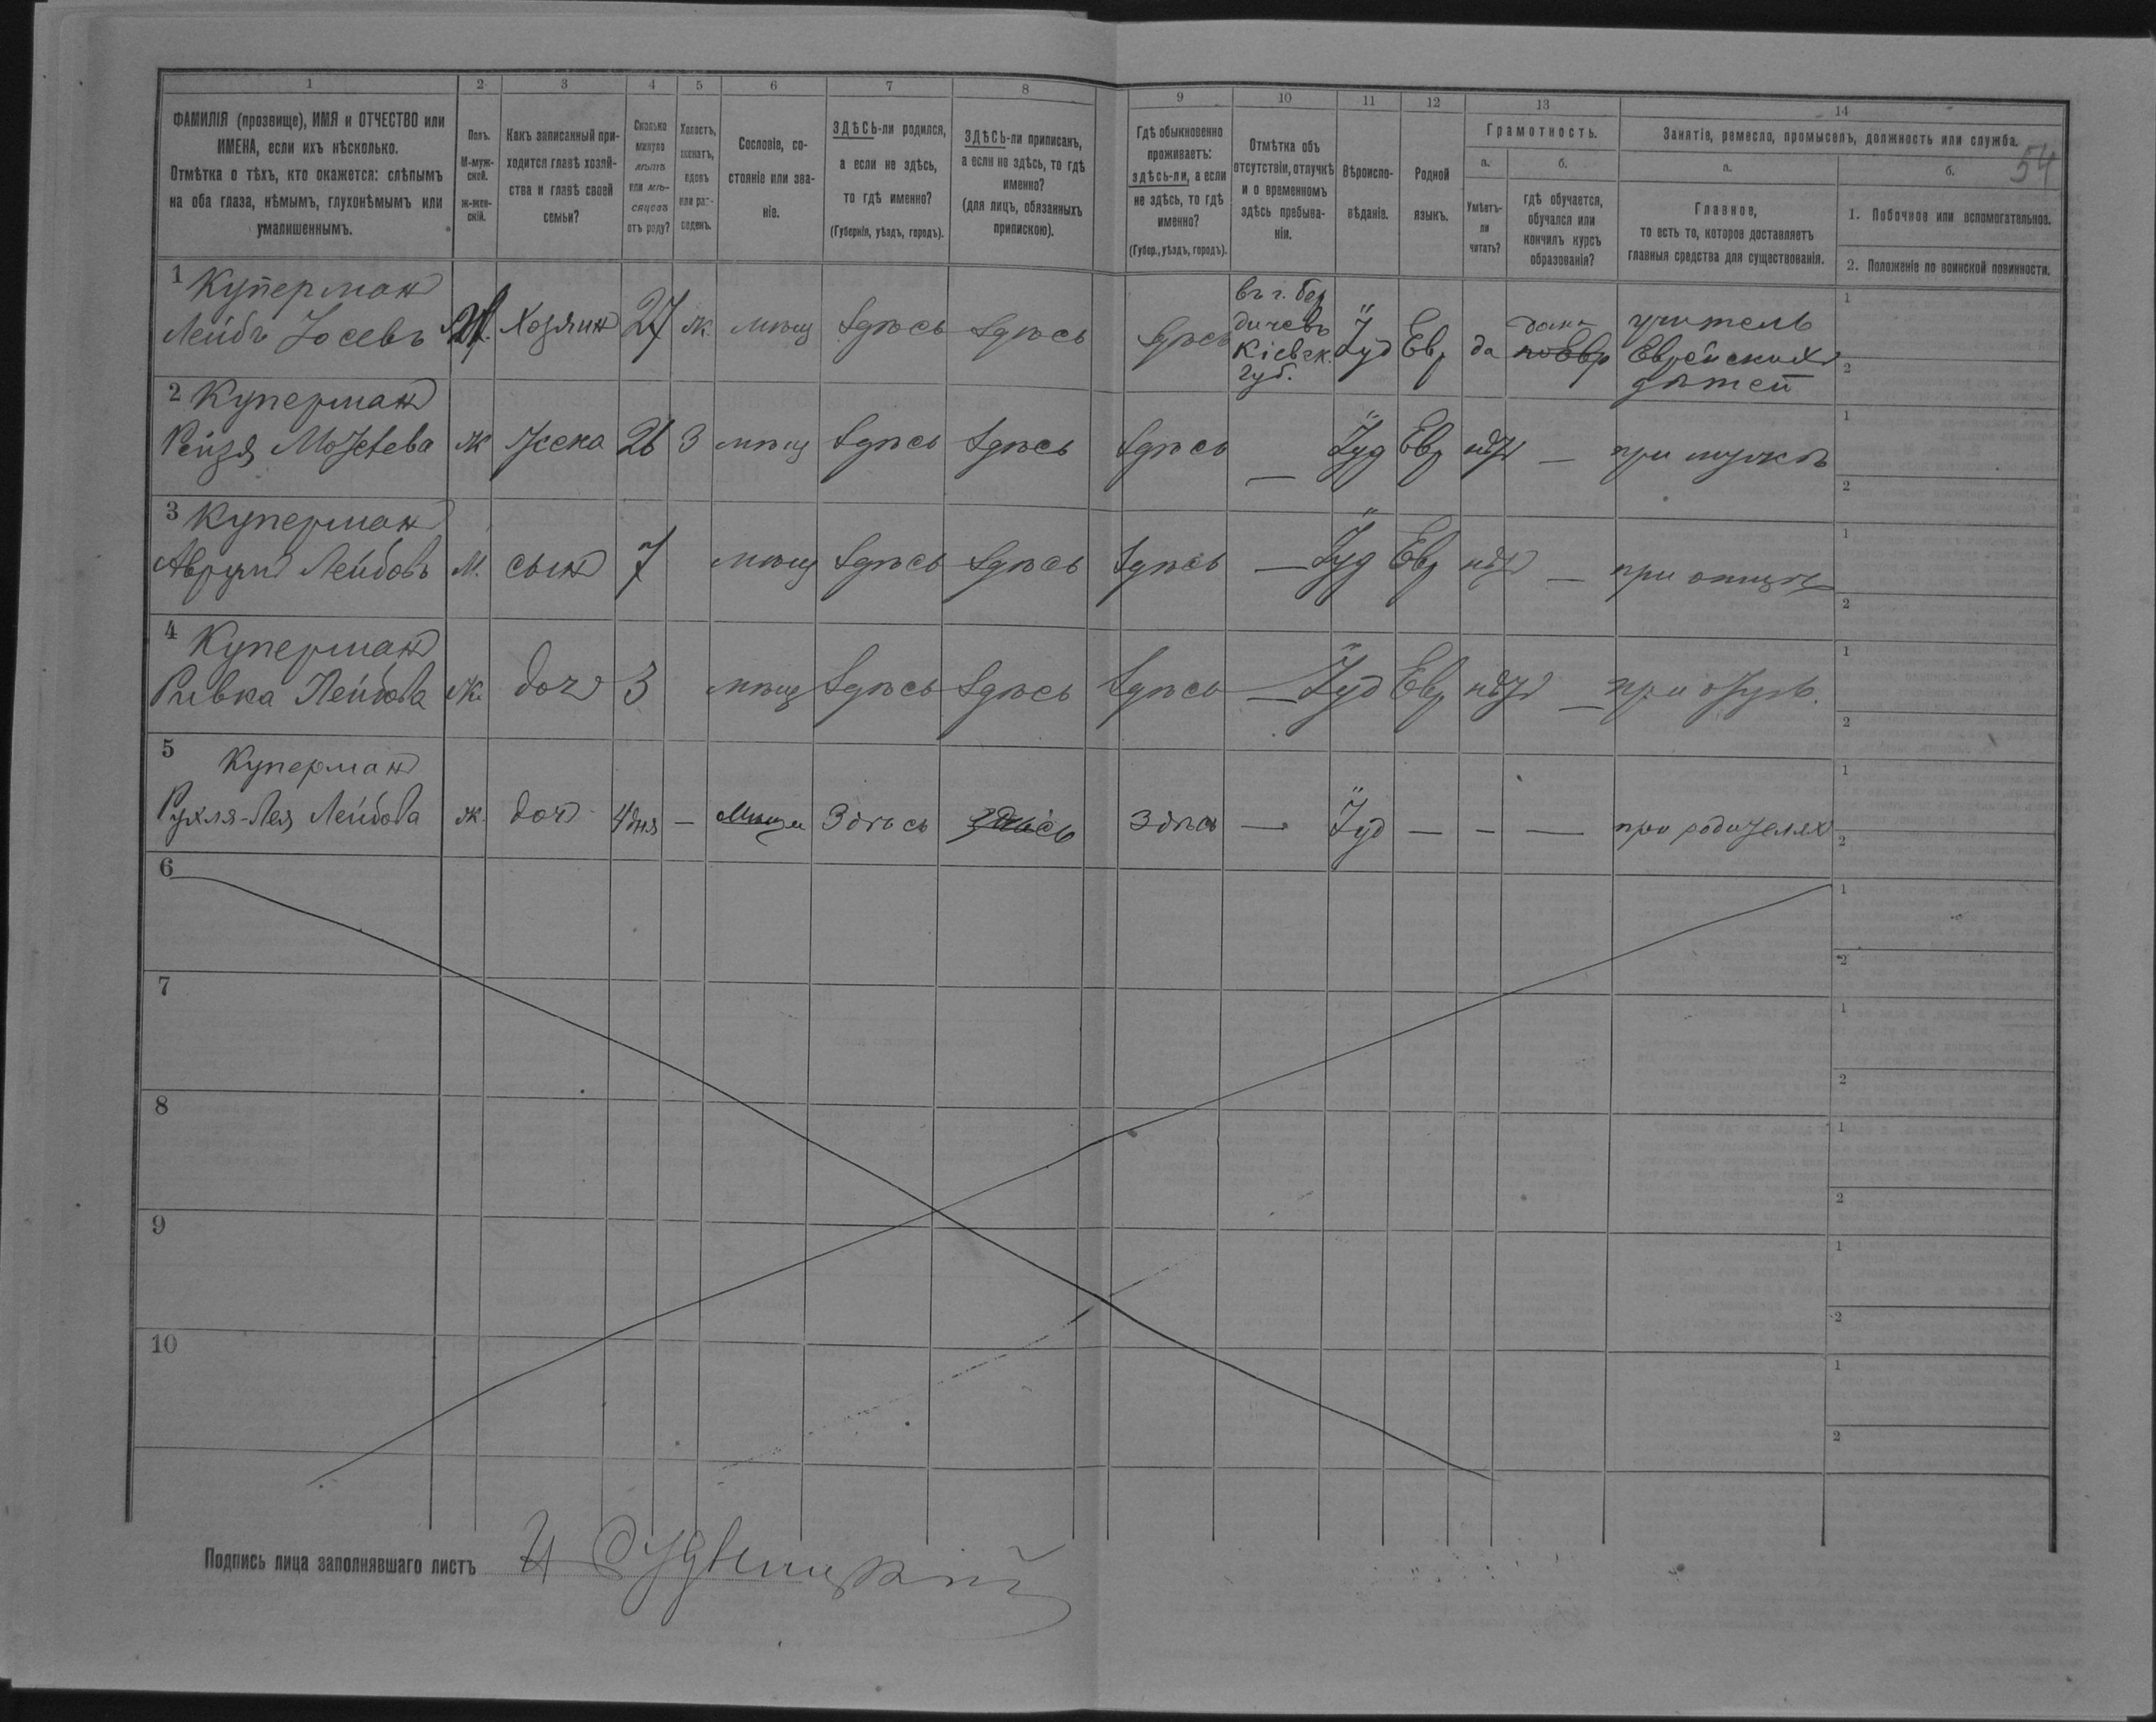 54
1 2 3 4 5 6 7 8 9 10 11 12 13 14
ФАМИЛІЯ (прозвище), ИМЯ и ОТЧЕСТВО или
ИМЕНА, если ихъ нѣсколько.
Отмѣтка о тѣхъ, кто окажется: слѣпымъ
на оба глаза, нѣмымъ, глухонѣмымъ или
умалишеннымъ.
Полъ.
М-муж-
ской.
Ж-жен-
скій.
Какъ записанный при-
ходится главѣ хозяй-
ства и главѣ своей
семьи?
Сколько
минуло
лѣтъ
или мѣ-
сяцевъ
отъ роду?
Холостъ,
женатъ,
вдовъ
или раз-
веденъ.
Сословіе, со-
стояніе или зва-
ніе.
ЗДѢСЬ-ли родился,
а если не здѣсь,
то гдѣ именно?
(Губернія, уѣздъ, городъ).
ЗДѢСЬ-ли приписанъ,
а если не здѣсь, то гдѣ
именно?
(для лицъ, обязанныхъ
припискою).
Гдѣ обыкновенно
проживаетъ:
здѣсь-ли, а если
не здѣсь, то гдѣ
именно?
(Губер., уѣздъ, городъ).
Отмѣтка объ
отсутствіи, отлучкѣ
и о временномъ
здѣсь пребыва-
ніи.
Вѣроиспо-
вѣданіе.
Родной
языкъ.
Грамотность.
а.
Умѣетъ-
ли
читать?
б.
гдѣ обучается,
обучался или
кончилъ курсъ
образованія?
Занятіе, ремесло, промыселъ, должность или служба.
а.
Главное,
то есть то, которое доставляетъ
главныя средства для существованія.
б.
1. Побочное или вспомогательное.
2. Положеніе по воинской повинности.
1 Куперман
Лейбъ Іосевъ М. Хозяин 27 ж. мѣщ Здѣсь Здѣсь Здѣсь
въ г. Бер
дичевъ
Кіевск.
Губ.
Іуд Евр да
дома
по Евр
учитель
Еврейских
дѣтей
1
2
2 Куперман
Рейзя Мошева ж жена 26 З мѣщ Здѣсь Здѣсь Здѣсь — Іуд Евр нѣт — при мужѣ
1
2
3 Куперман
Аврум Лейбовъ М. сын 7 мѣщ Здѣсь Здѣсь Здѣсь — Іуд Евр нѣт — при отцѣ
1
2
4 Куперман
Ривка Лейбова Ж. доч 3 мѣщ Здѣсь Здѣсь Здѣсь — Іуд Евр нѣт — при отцѣ.
1
2
5 Куперман
Рухля-Лея Лейбова ж. доч 4 дня — Мѣщ Здѣсь здѣсь Здѣсь — Іуд — — — при родителях
1
2
6
1
2
7
1
2
8
1
2
9
1
2
10
1
2
Подпись лица заполнявшаго листъ